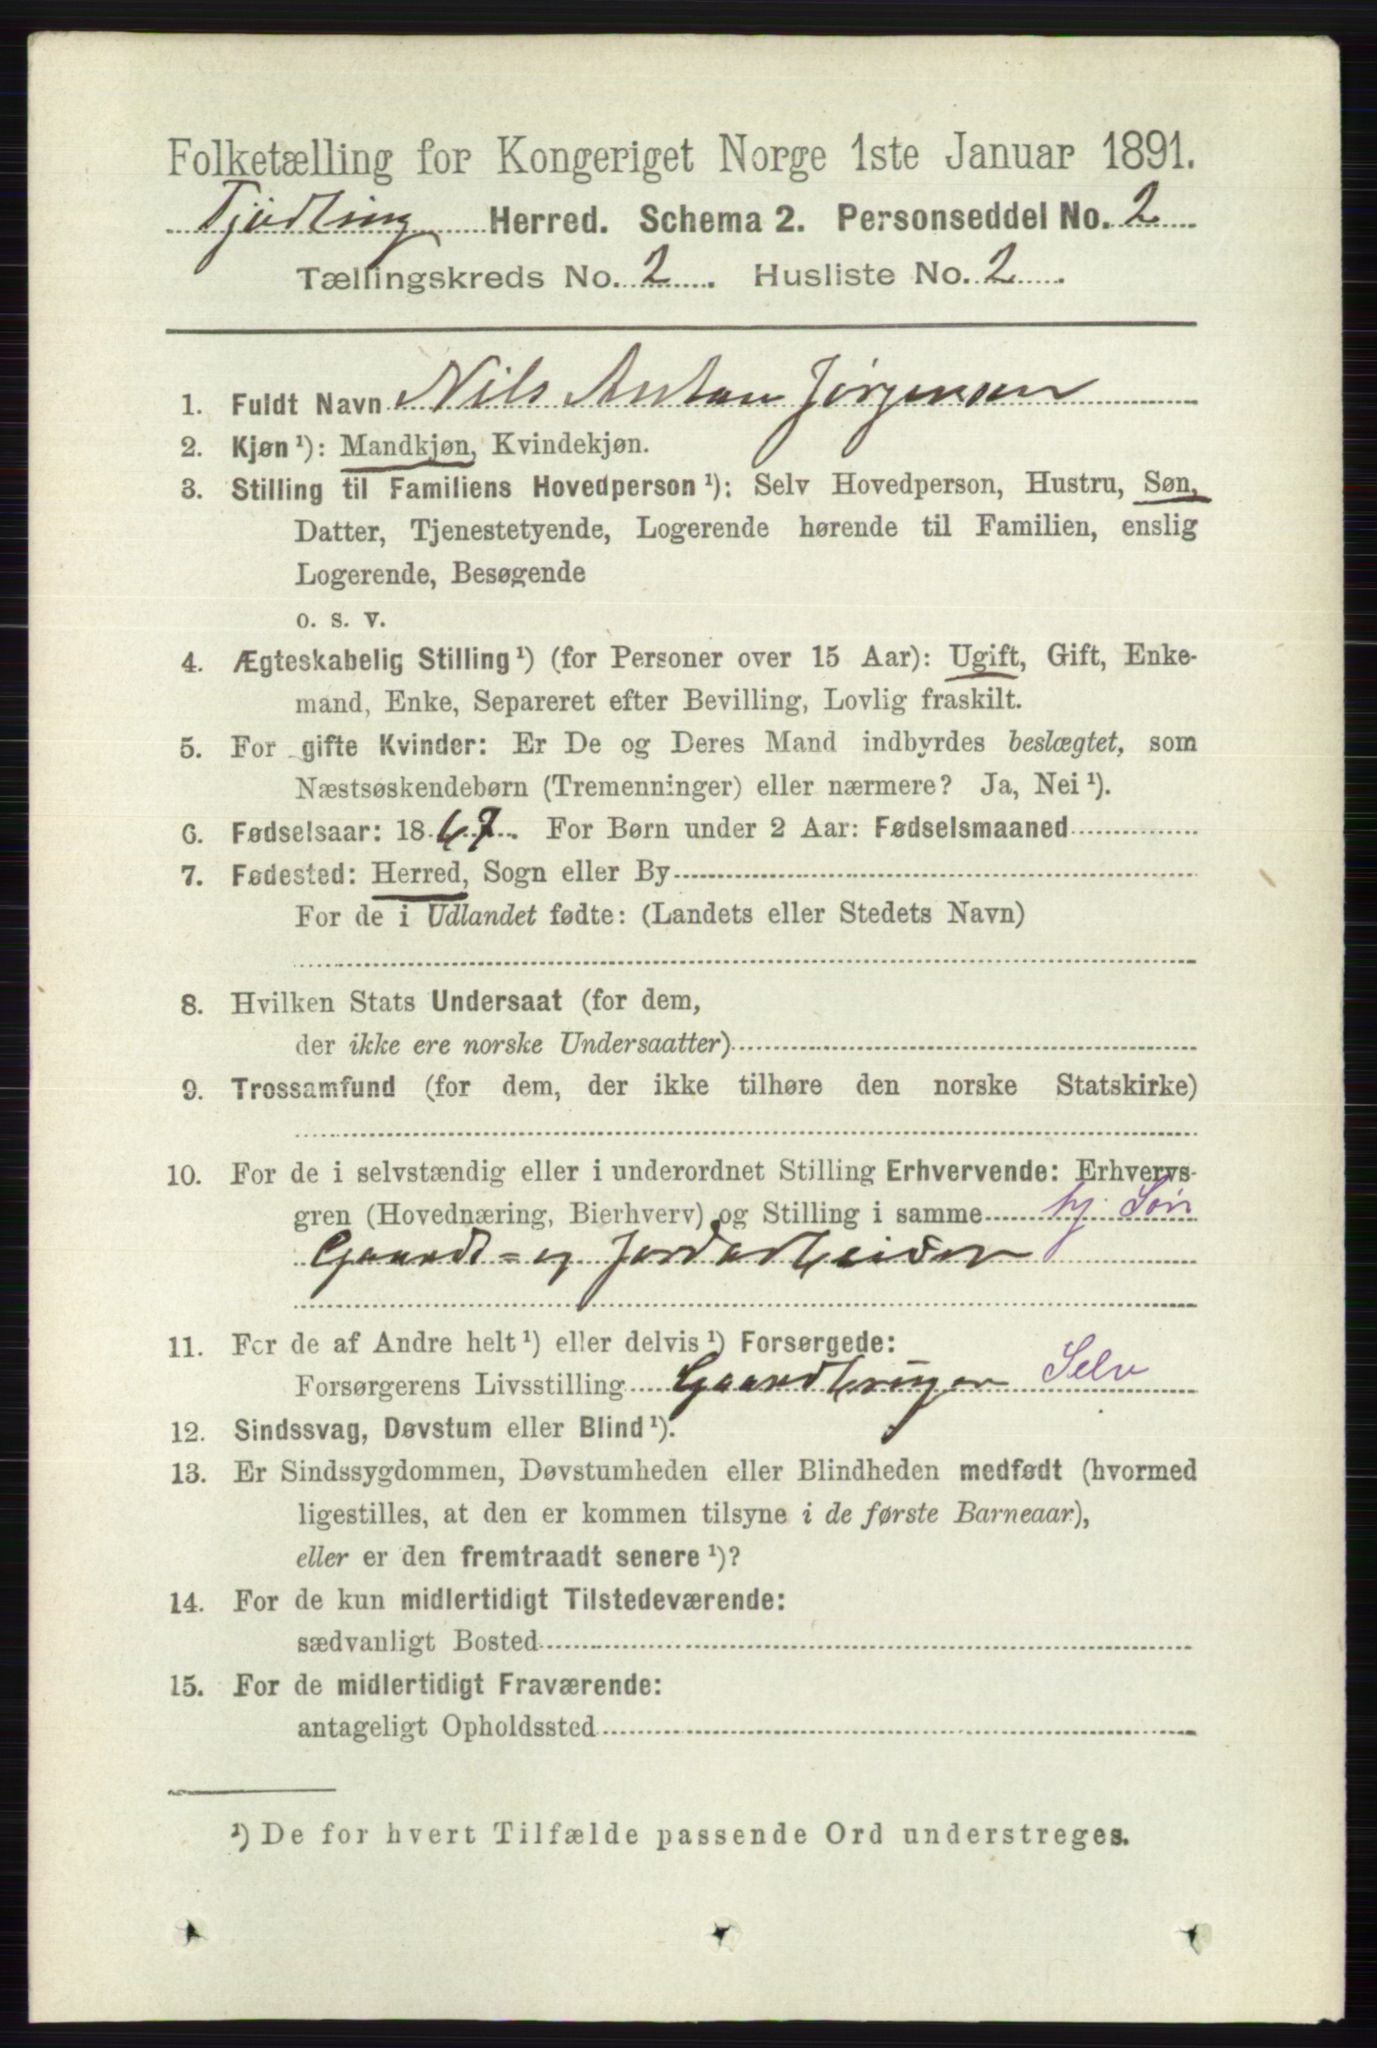 Folketælling for Kongeriget Norge 1ste Januar 1891.
Tjødling Herred. Schema 2. Personseddel No. 2
Tællingskreds No. 2. Husliste No. 2.
1. Fuldt Navn Nils Anton Jørgensen
2. Kjøn ¹): Mandkjøn, Kvindekjøn.
3. Stilling til Familiens Hovedperson ¹): Selv Hovedperson, Hustru, Søn,
Datter, Tjenestetyende, Logerende hørende til Familien, enslig
Logerende, Besøgende
o. s. v.
4. Ægteskabelig Stilling ¹) (for Personer over 15 Aar): Ugift, Gift, Enke-
mand, Enke, Separeret efter Bevilling, Lovlig fraskilt.
5. For gifte Kvinder: Er De og Deres Mand indbyrdes beslægtet, som
Næstsøskendebørn (Tremenninger) eller nærmere? Ja, Nei ¹).
6. Fødselsaar: 1867. For Børn under 2 Aar: Fødselsmaaned
7. Fødested: Herred, Sogn eller By
For de i Udlandet fødte: (Landets eller Stedets Navn)
8. Hvilken Stats Undersaat (for dem,
der ikke ere norske Undersaatter)
9. Trossamfund (for dem, der ikke tilhøre den norske Statskirke)
10. For de i selvstændig eller i underordnet Stilling Erhvervende: Erhvervs-
gren (Hovednæring, Bierhverv) og Stilling i samme hj. Søn
Gaards- og Jordarbeider
11. For de af Andre helt ¹) eller delvis ¹) Forsørgede:
Forsørgerens Livsstilling Gaardbruger Selv
12. Sindssvag, Døvstum eller Blind ¹).
13. Er Sindssygdommen, Døvstumheden eller Blindheden medfødt (hvormed
ligestilles, at den er kommen tilsyne i de første Barneaar),
eller er den fremtraadt senere ¹)?
14. For de kun midlertidigt Tilstedeværende:
sædvanligt Bosted
15. For de midlertidigt Fraværende:
antageligt Opholdssted
¹) De for hvert Tilfælde passende Ord understreges.